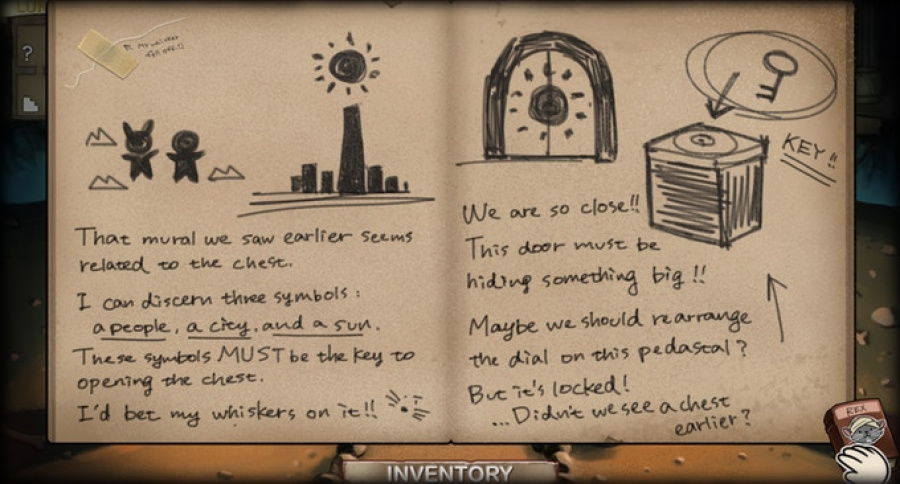 My whisker
fell off!!
That mural we saw earlier seems
related to the chest.
I can discern three symbols :
a people, a city, and a sun.
These symbols MUST be the key to
opening the chest.
I'd bet my whiskers on it!!
KEY!!
We are so close!!
This door must be
hiding something big!!
Maybe we should rearrange
the dial on this pedastal?
But it's locked!
...Didn't we see a chest
earlier?
?
REX
INVENTORY